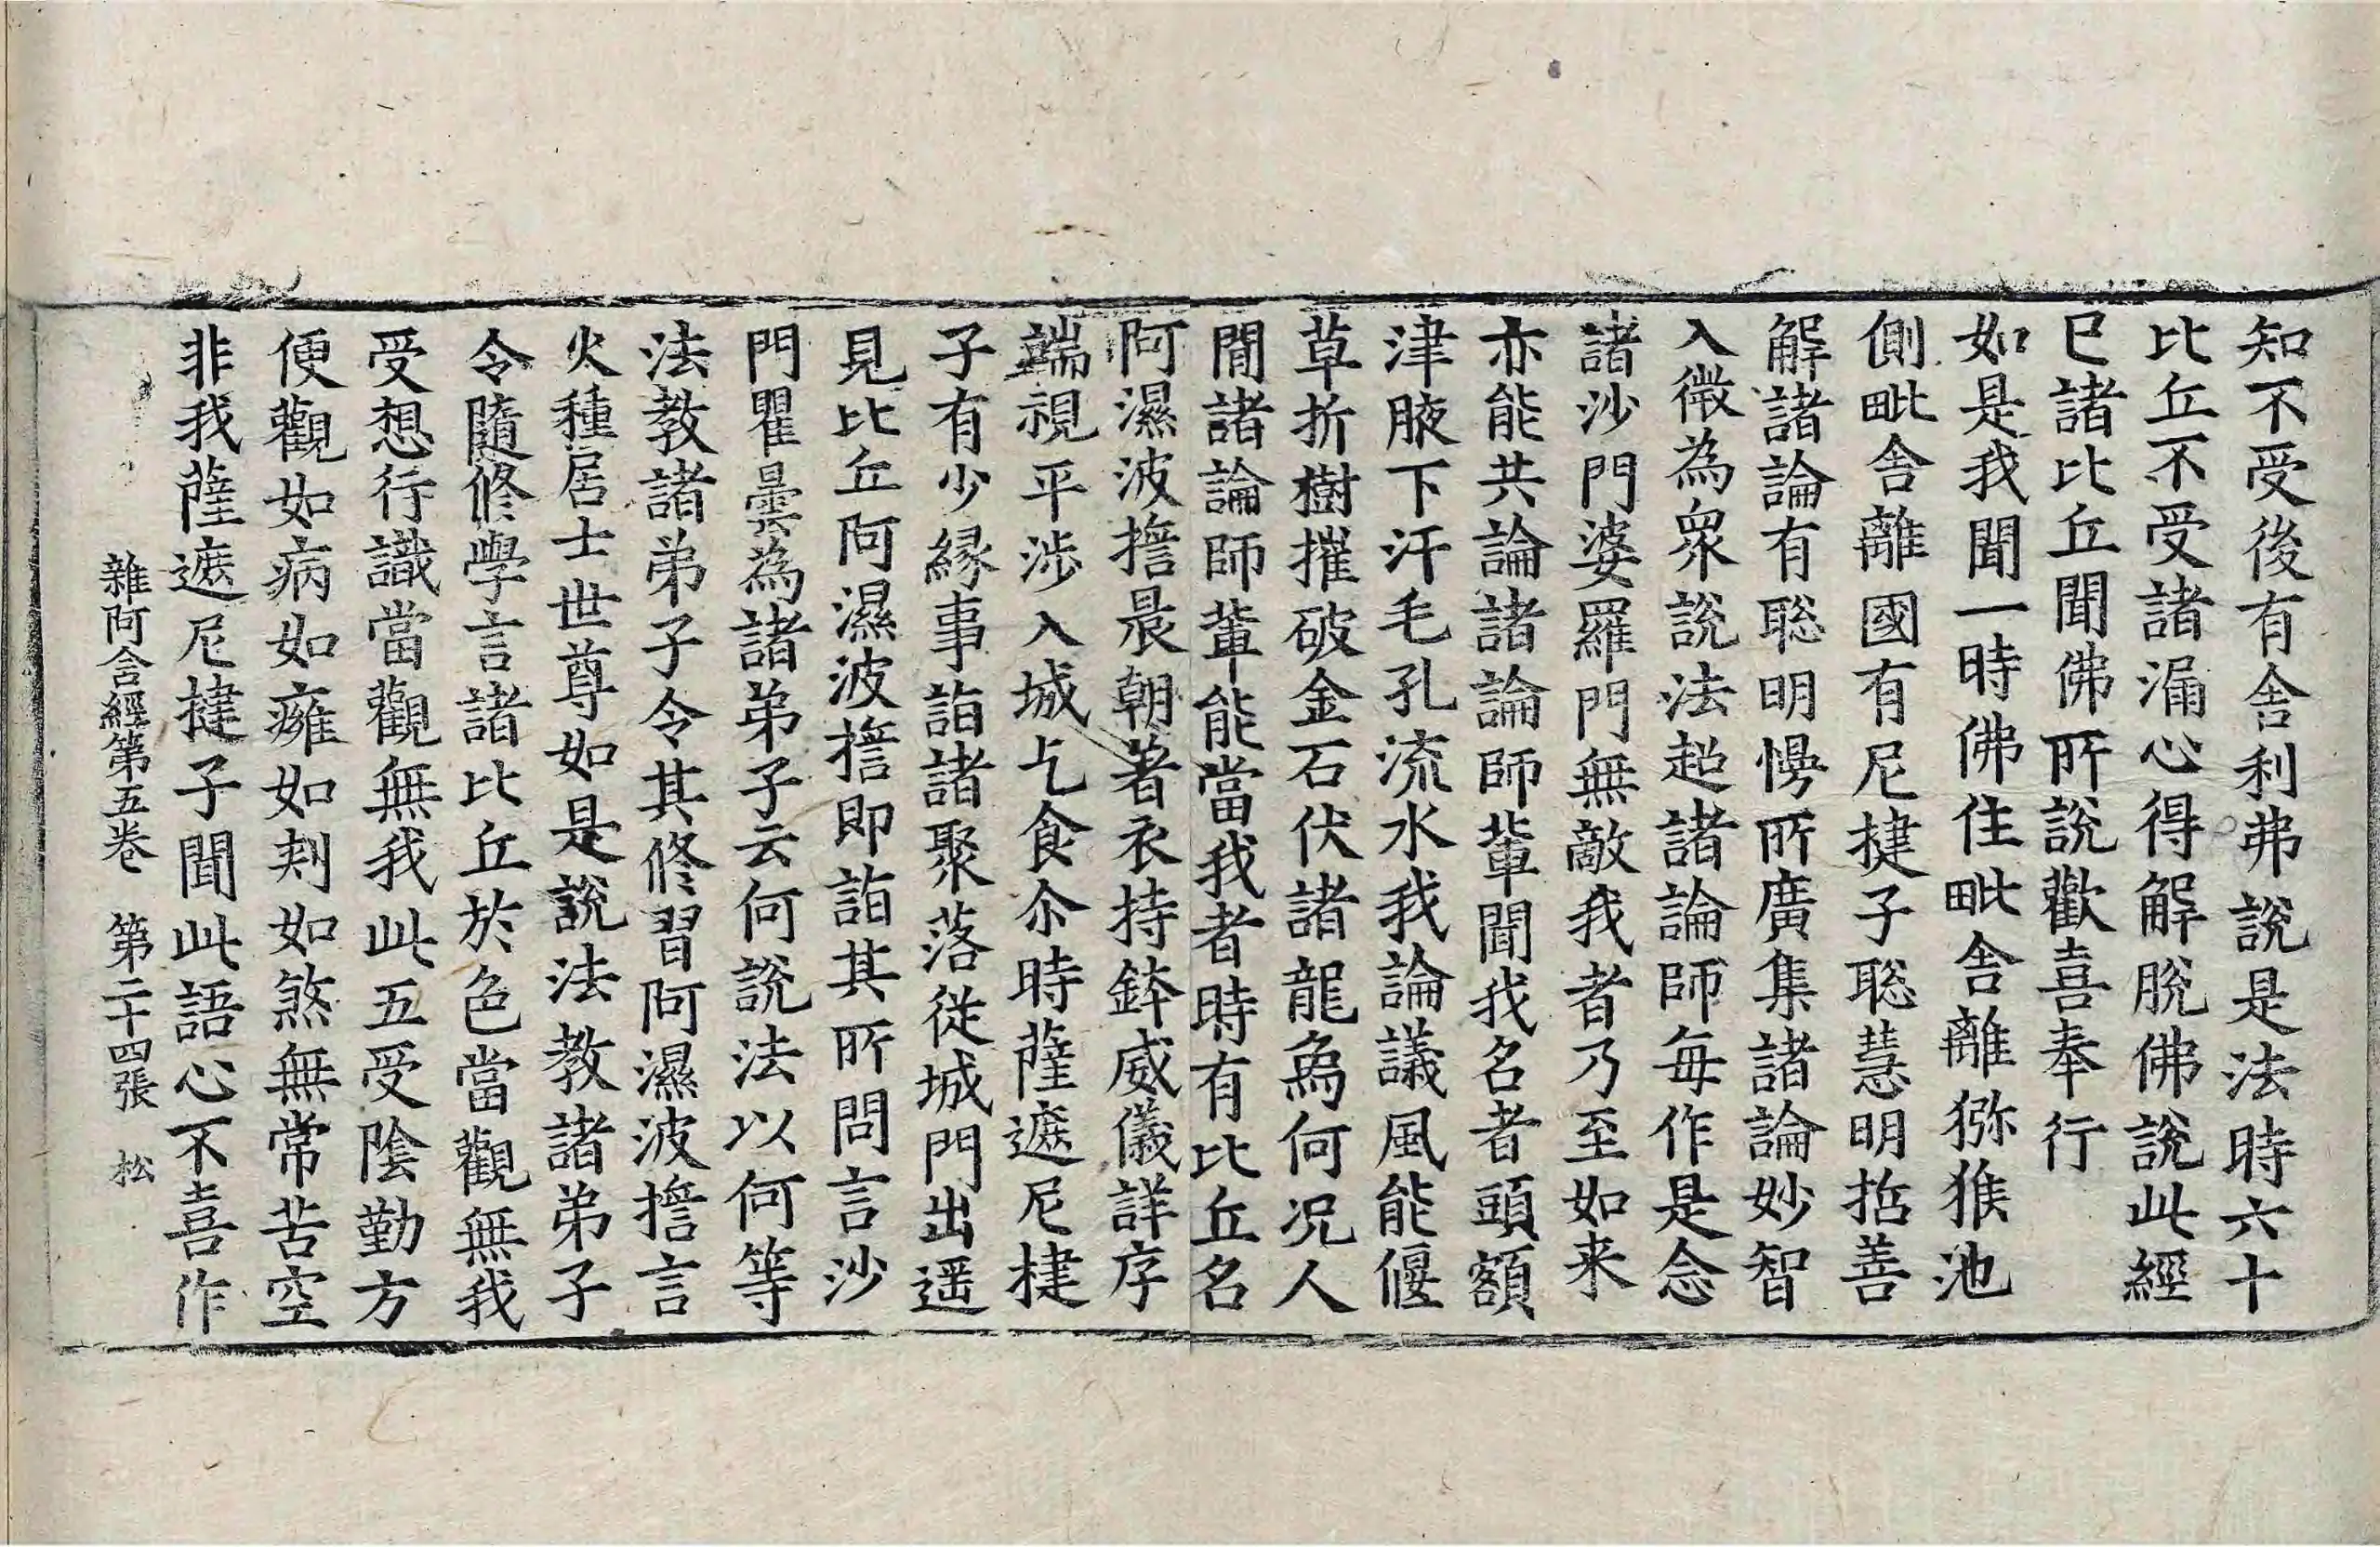 知不受後有舎利弗說是法時六十
比丘不受諸漏心得解脫佛說此經
已諸比丘聞佛所說歡喜奉行
如是我聞一時佛住毗舎離獼猴池
側毗舎離國有尼揵子聡慧明哲善
解諸論有聡明慢所廣集諸論妙智
入微為衆說法超諸論師每作是念
諸沙門婆羅門無敵我者乃至如来
亦能共論諸論師輩聞我名者頭額
津腋下汗毛孔流水我論議風能偃
草折樹摧破金石伏諸龍為何况人
間諸論師輩能當我者時有比丘名
阿濕波擔晨朝著衣持鉢威儀詳序
端視平涉入城乞食尒時薩遮尼揵
子有少緣事詣諸聚落從城門出遥
見比丘阿濕波擔即詣其所問言沙
門瞿曇為諸弟子云何說法以何等
法教諸弟子令其修習阿濕波擔言
火種居士世尊如是說法教諸弟子
令隨修學言諸比丘於色當觀無我
受想行識當觀無我此五受陰勤方
便觀如病如癰如刺如煞無常苦空
非我薩遮尼揵子聞此語心不喜作
雜阿含經第五卷　第二十四張　松